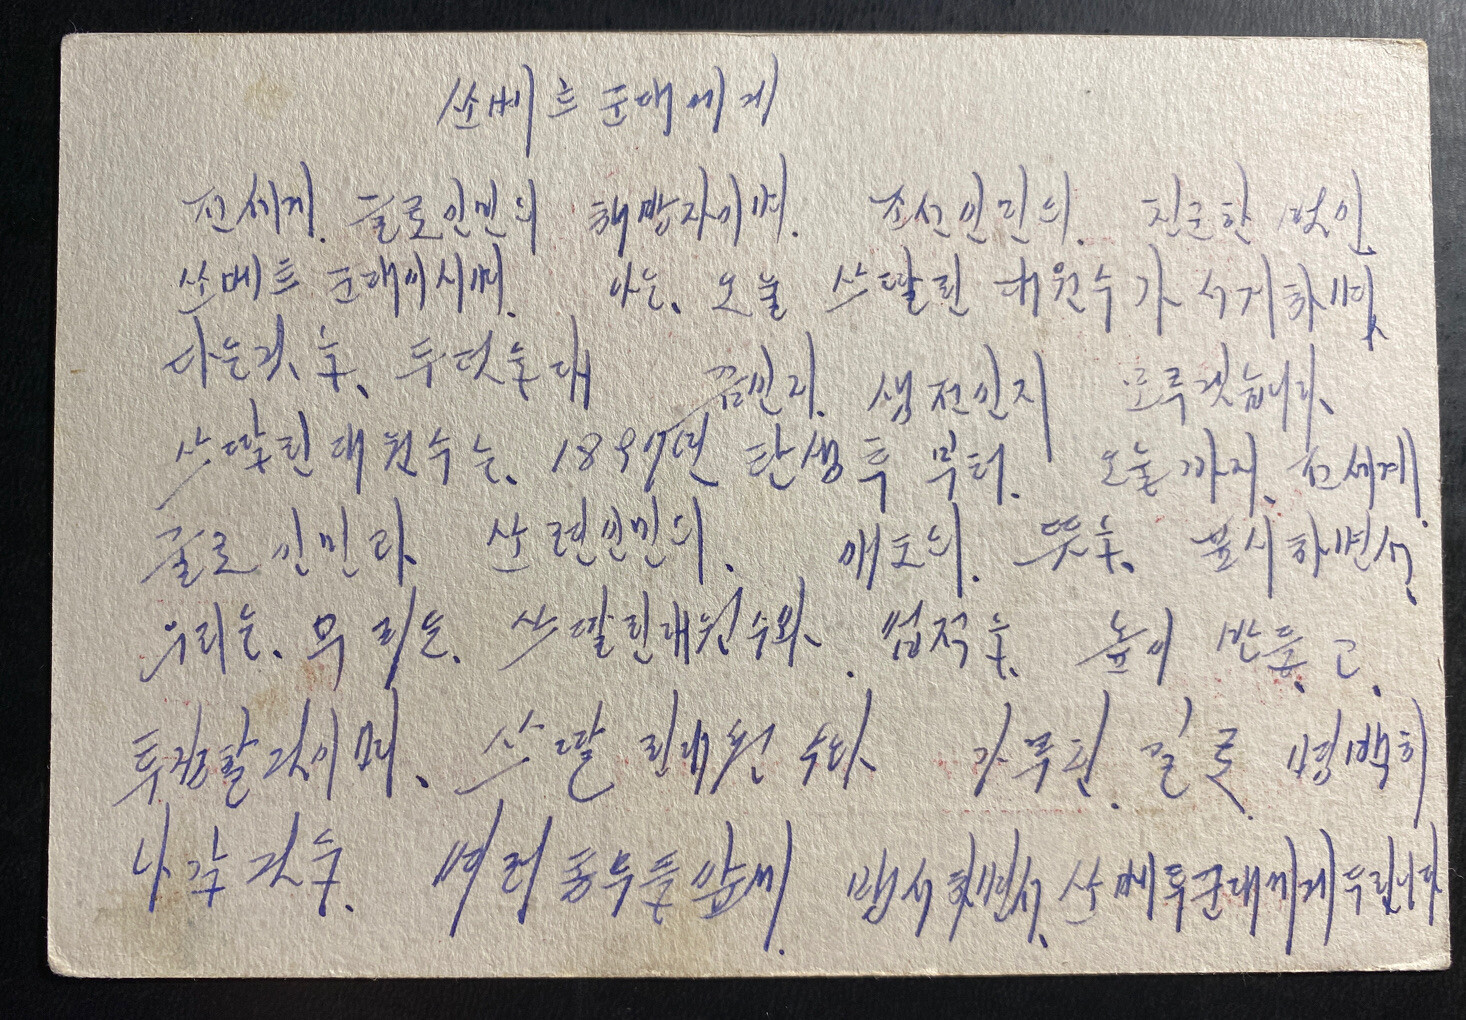 쏘베트 군대에게
전세게. 글로인민의 해방자이며. 조선인민의. 친근한 벗인
쏘베트 군대이시며. 나는. 오늘 쓰딸린 대원수가 서거하였
다는것을. 두엇는대 꿈인지. 생전인지 모루겟습니다.
쓰딸린대원수는. 18 탄생후 부터. 오늘까지. 전세게
글로인민과 쏘련인민의. 애도의. 뜻을. 표시하면서.
우리는. 쓰딸린대원수와. 업적을. 높이 반들고.
투쟁할것이며. 쓰딸린대원수와 가루킨. 길로. 명백히
나갈것을. 여러동무들앞에. 맹서하면서. 쏘베투군대에게두립니다